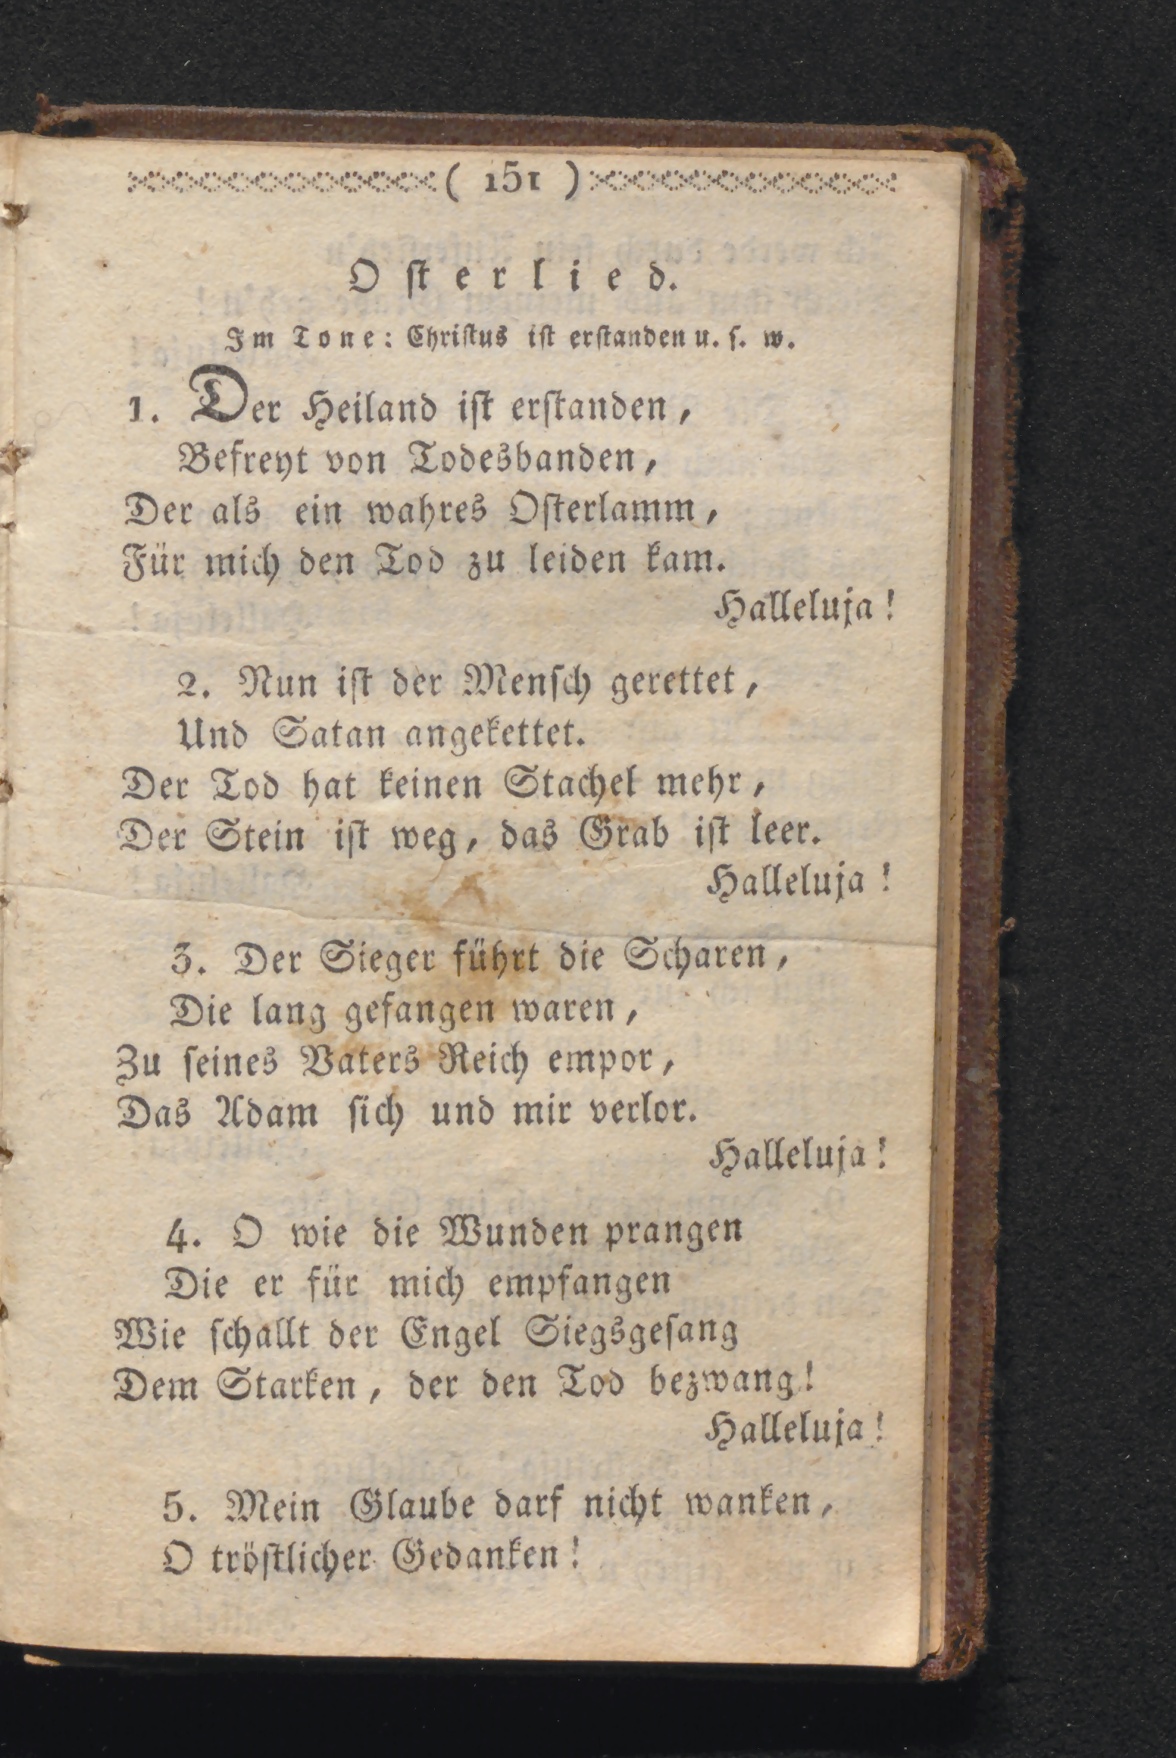 ( 151 )
Osterlied.
Im Tone: Christus ist erstanden u. s. w.
1. Der Heiland ist erstanden,
Befreyt von Todesbanden,
Der als ein wahres Osterlamm,
Für mich den Tod zu leiden kam.
Halleluja!
2. Nun ist der Mensch gerettet,
Und Satan angekettet.
Der Tod hat keinen Stachel mehr,
Der Stein ist weg, das Grab ist leer.
Halleluja!
3. Der Sieger führt die Scharen,
Die lang gefangen waren,
Zu seines Vaters Reich empor,
Das Adam sich und mir verlor.
Halleluja!
4. O wie die Wunden prangen
Die er für mich empfangen
Wie schallt der Engel Siegsgesang
Dem Starken, der den Tod bezwang!
Halleluja!
5. Mein Glaube darf nicht wanken,
O tröstlicher Gedanken!